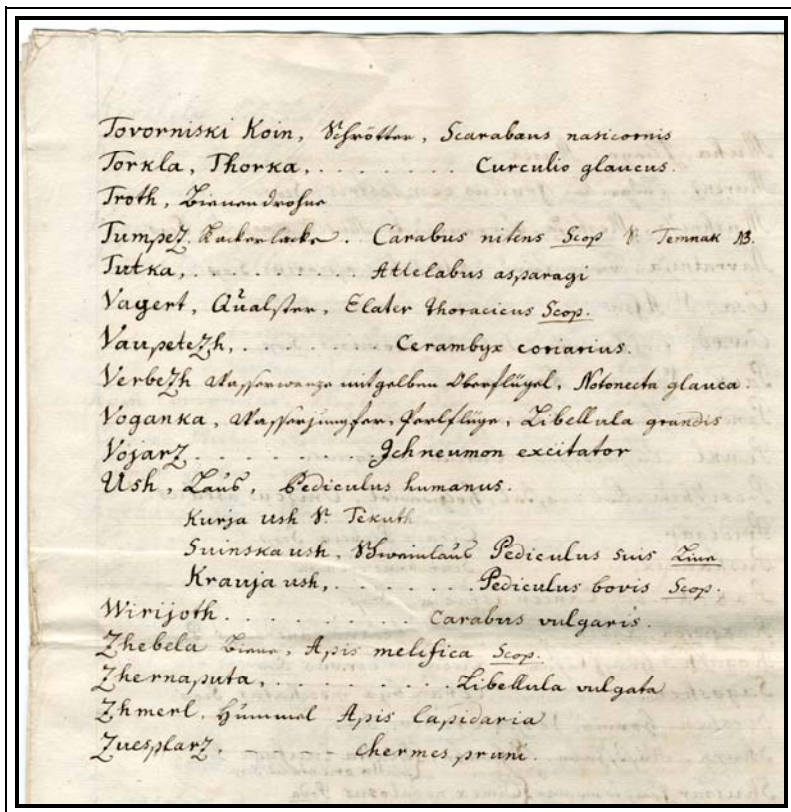 Tovorniski Koin, Schrötter, Scarabæus nasicornis
Torkla, Thorka, . . . . . . . . Curculio glaucus.
Troth, Bienendrohne
Tumpez. Kackerlacke. Carabus nitens Scop V. Temnak
Tutka, . . . . . . . . . Attelabus asparagi
Vagert, Qualster, Elater thoracicus Scop.
Vaupetezh, . . . . . . . Cerambyx coriarius.
Verbezh Wasserwanze mit gelben Oberflügel, Notonecta glauca.
Voganka, Wasserjungfer, Libellula grandis
Vojarz . . . . . . . . . Ichneumon excitator
Ush, Laus, Pediculus humanus.
Kurja ush V. Tekuth
Suinska ush, Schweinlaus Pediculus suis Linn
Krauja ush, . . . . . . . Pediculus bovis Scop.
Wirijoth . . . . . . . . . Carabus vulgaris.
Zhebela Biene, Apis melifica Scop.
Zhernaputa, . . . . . . . . Libellula vulgata
Zhmerl, Hummel Apis lapidaria
Zuesplarz. Chermes pruni.